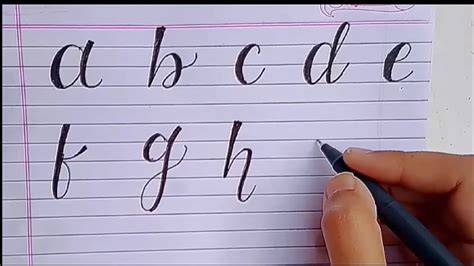 a b c d e
f g h